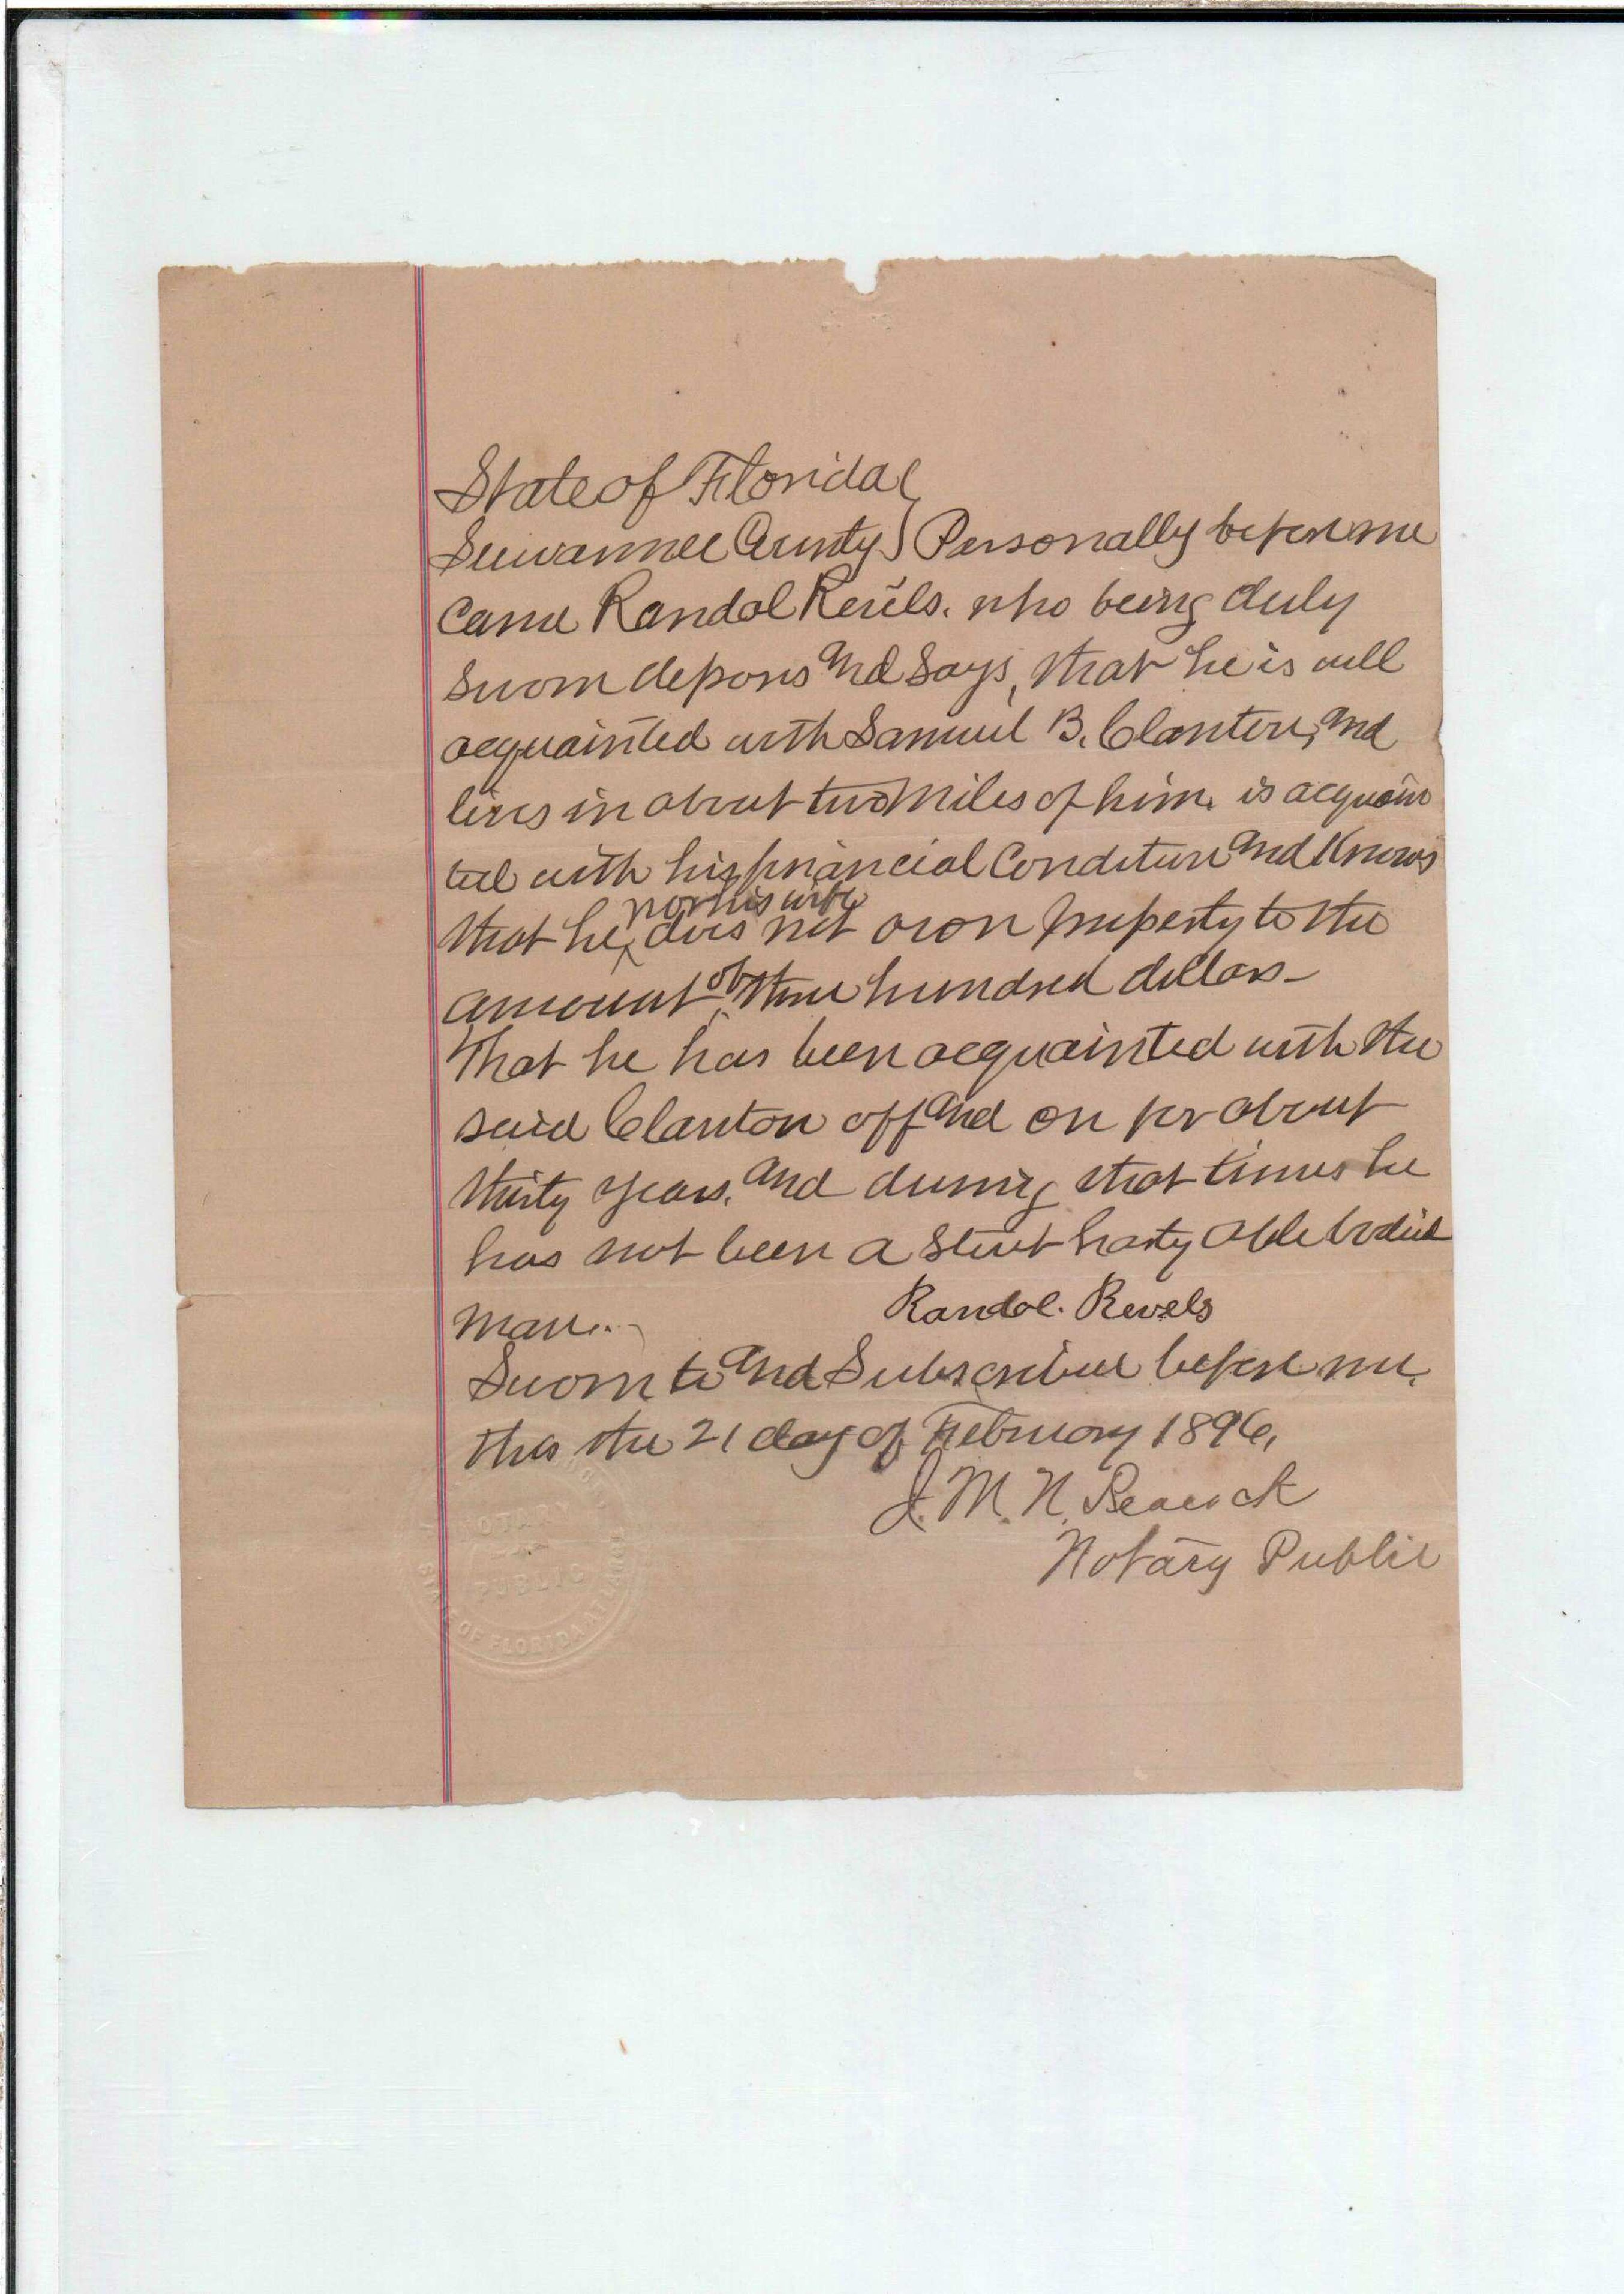 State of Florida
Suwannee County } Personally before me
came Randal Revels. who being duly
sworn depons and says, that he is well
acquainted with Samuel B. Clanton, and
lives in about two miles of him. is acquain
ted with his financial Condition and Knows
nor his wife
that he does not own property to the
amount of three hundred dollars -
That he has been acquainted with the
said Clanton off and on for about
thirty years. and during that times he
has not been a stout harty able bodied
man.
Randol. Revels
Sworn to and Subscribed before me.
this the 21 day of February 1896.
J. M. N. Peacock
Notary Public
NOTARY
PUBLIC
STATE OF FLORIDA AT LARGE